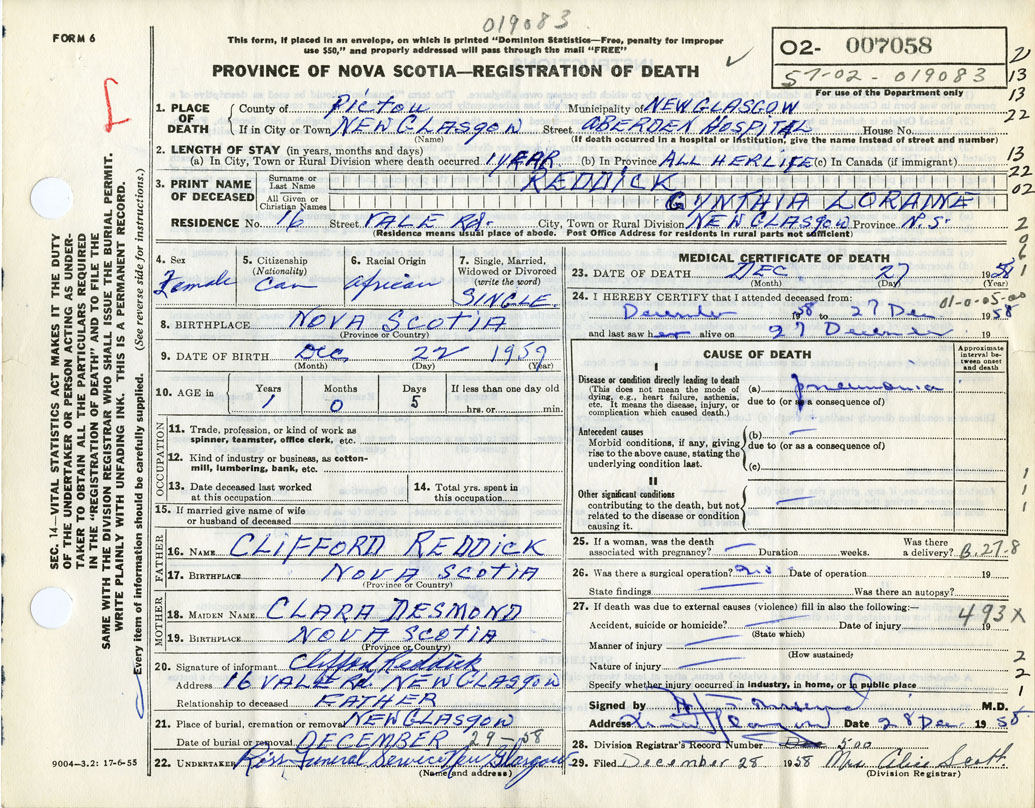 019083
FORM 6
This form, if placed in an envelope, on which is printed "Dominion Statistics—Free, penalty for improper
use $50," and properly addressed will pass through the mail "FREE"
PROVINCE OF NOVA SCOTIA—REGISTRATION OF DEATH
02- 007058
57-02-019083
For use of the Department only
21
13
13
22
13
22
02
SEC. 14—VITAL STATISTICS ACT MAKES IT THE DUTY
OF THE UNDERTAKER OR PERSON ACTING AS UNDER-
TAKER TO OBTAIN ALL THE PARTICULARS REQUIRED
IN THE "REGISTRATION OF DEATH" AND TO FILE THE
SAME WITH THE DIVISION REGISTRAR WHO SHALL ISSUE THE BURIAL PERMIT.
WRITE PLAINLY WITH UNFADING INK. THIS IS A PERMANENT RECORD.
Every item of information should be carefully supplied. (See reverse side for instructions.)
1. PLACE OF DEATH
County of Pictou Municipality of NEW GLASGOW
If in City or Town NEW GLASGOW Street ABERDEN HOSPITAL House No.
(Name) (If death occurred in a hospital or institution, give the name instead of street and number)
2. LENGTH OF STAY (in years, months and days)
(a) In City, Town or Rural Division where death occurred 1 YEAR (b) In Province ALL HER LIFE (c) In Canada (if immigrant)
3. PRINT NAME OF DECEASED
Surname or Last Name REDDICK
All Given or Christian Names CYNTHIA LORAINE
RESIDENCE No. 16 Street VALE Rd. City, Town or Rural Division NEW GLASGOW Province N.S.
(Residence means usual place of abode. Post Office Address for residents in rural parts not sufficient)
4. Sex
Female
5. Citizenship
(Nationality)
Can
6. Racial Origin
African
7. Single, Married,
Widowed or Divorced
(write the word)
SINGLE.
8. BIRTHPLACE NOVA SCOTIA
(Province or Country)
9. DATE OF BIRTH Dec 22 1957
(Month) (Day) (Year)
10. AGE in
Years Months Days If less than one day old
1 0 5 hrs. or min.
OCCUPATION
11. Trade, profession, or kind of work as
spinner, teamster, office clerk, etc.
12. Kind of industry or business, as cotton-
mill, lumbering, bank, etc.
13. Date deceased last worked
at this occupation
14. Total yrs. spent in
this occupation
15. If married give name of wife
or husband of deceased
FATHER
16. NAME CLIFFORD REDDICK
17. BIRTHPLACE NOVA SCOTIA
(Province or Country)
MOTHER
18. MAIDEN NAME CLARA DESMOND
19. BIRTHPLACE NOVA SCOTIA
(Province or Country)
20. Signature of informant Clifford Reddick
Address 16 VALE Rd. NEW GLASGOW
Relationship to deceased FATHER
21. Place of burial, cremation or removal NEW GLASGOW
Date of burial or removal DECEMBER 29-58
22. UNDERTAKER Ross Funeral Service New Glasgow
(Name and address)
9004—3.2: 17-6-55
MEDICAL CERTIFICATE OF DEATH
23. DATE OF DEATH DEC 27 1958
(Month) (Day) (Year)
24. I HEREBY CERTIFY that I attended deceased from:
01-0-05-00
December 1958 to 27 Dec 1958
and last saw her alive on 27 December 19
CAUSE OF DEATH
Approximate
interval be-
tween onset
and death
I
Disease or condition directly leading to death
(This does not mean the mode of
dying, e.g., heart failure, asthenia,
etc. It means the disease, injury, or
complication which caused death.)
(a) pneumonia
due to (or as a consequence of)
Antecedent causes
Morbid conditions, if any, giving
rise to the above cause, stating the
underlying condition last.
(b) —
due to (or as a consequence of)
(c)
II
Other significant conditions
contributing to the death, but not
related to the disease or condition
causing it.
25. If a woman, was the death
associated with pregnancy? — Duration weeks. Was there
a delivery? B.27-8
26. Was there a surgical operation? no Date of operation 19
State findings Was there an autopsy?
27. If death was due to external causes (violence) fill in also the following:—
493X
Accident, suicide or homicide? Date of injury 19
(State which)
Manner of injury
(How sustained)
Nature of injury
Specify whether injury occurred in industry, in home, or in public place
Signed by M.D.
Address Date 28 Dec 1958
28. Division Registrar's Record Number 500
29. Filed December 28 1958 Mrs Alice Scott.
(Division Registrar)